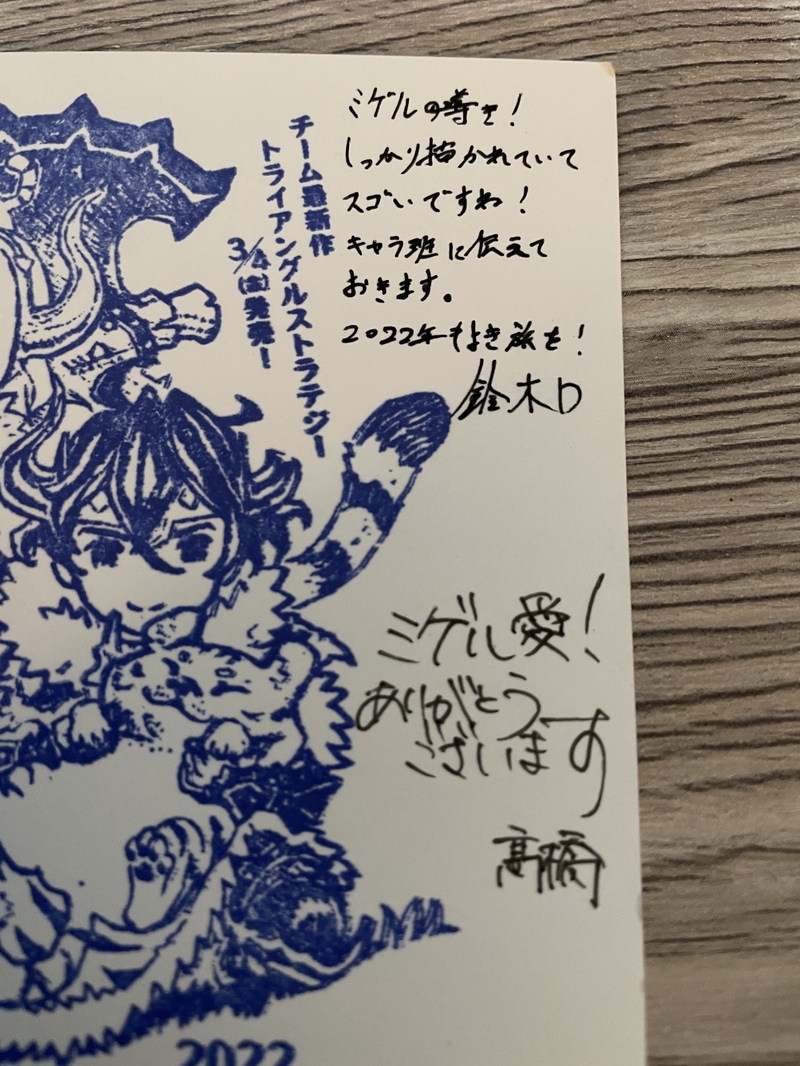 チーム最新作
トライアングルストラテジー
3/4(金)発売!
ミゲルの導き!
しっかり描かれていて
スゴいですね!
キャラ班に伝えて
おきます。
2022年もよき旅を!
鈴木D
ミゲル愛!
ありがとう
ございます
高橋
2022